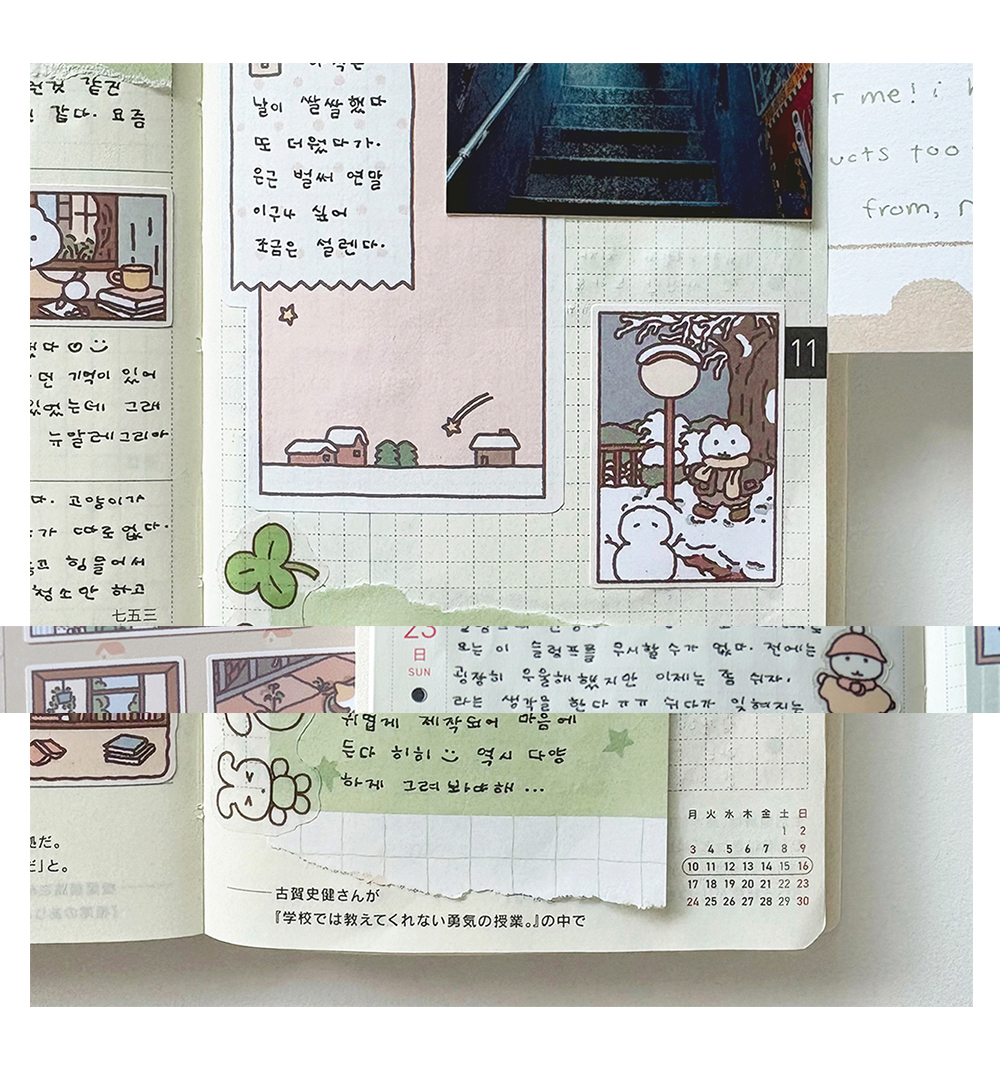 같건
같다. 요즘
날이 쌀쌀했다
또 더웠다가.
은근 벌써 연말
이구나 싶어
조금은 설렌다.
r me! i
ucts too
from,
11
던 기억이 있어
있었는데 그래
뉴말레그리아
다. 고양이가
가 따로없다.
힘들어서
청소만 하고
七五三
23
日
SUN
요는 이 슬럼프를 무시할수가 없다. 전에는
굉장히 우울해했지만 이제는 좀 쉬자.
라는 생각을 한다ㅠㅠ 쉬다가 잊혀지는
귀엽게 제작되어 마음에
든다 히히 역시 다양
하게 그려봐야해...
だ。
だ」と。
古賀史健さんが
『学校では教えてくれない勇気の授業。』の中で
月 火 水 木 金 土 日
1 2
3 4 5 6 7 8 9
10 11 12 13 14 15 16
17 18 19 20 21 22 23
24 25 26 27 28 29 30